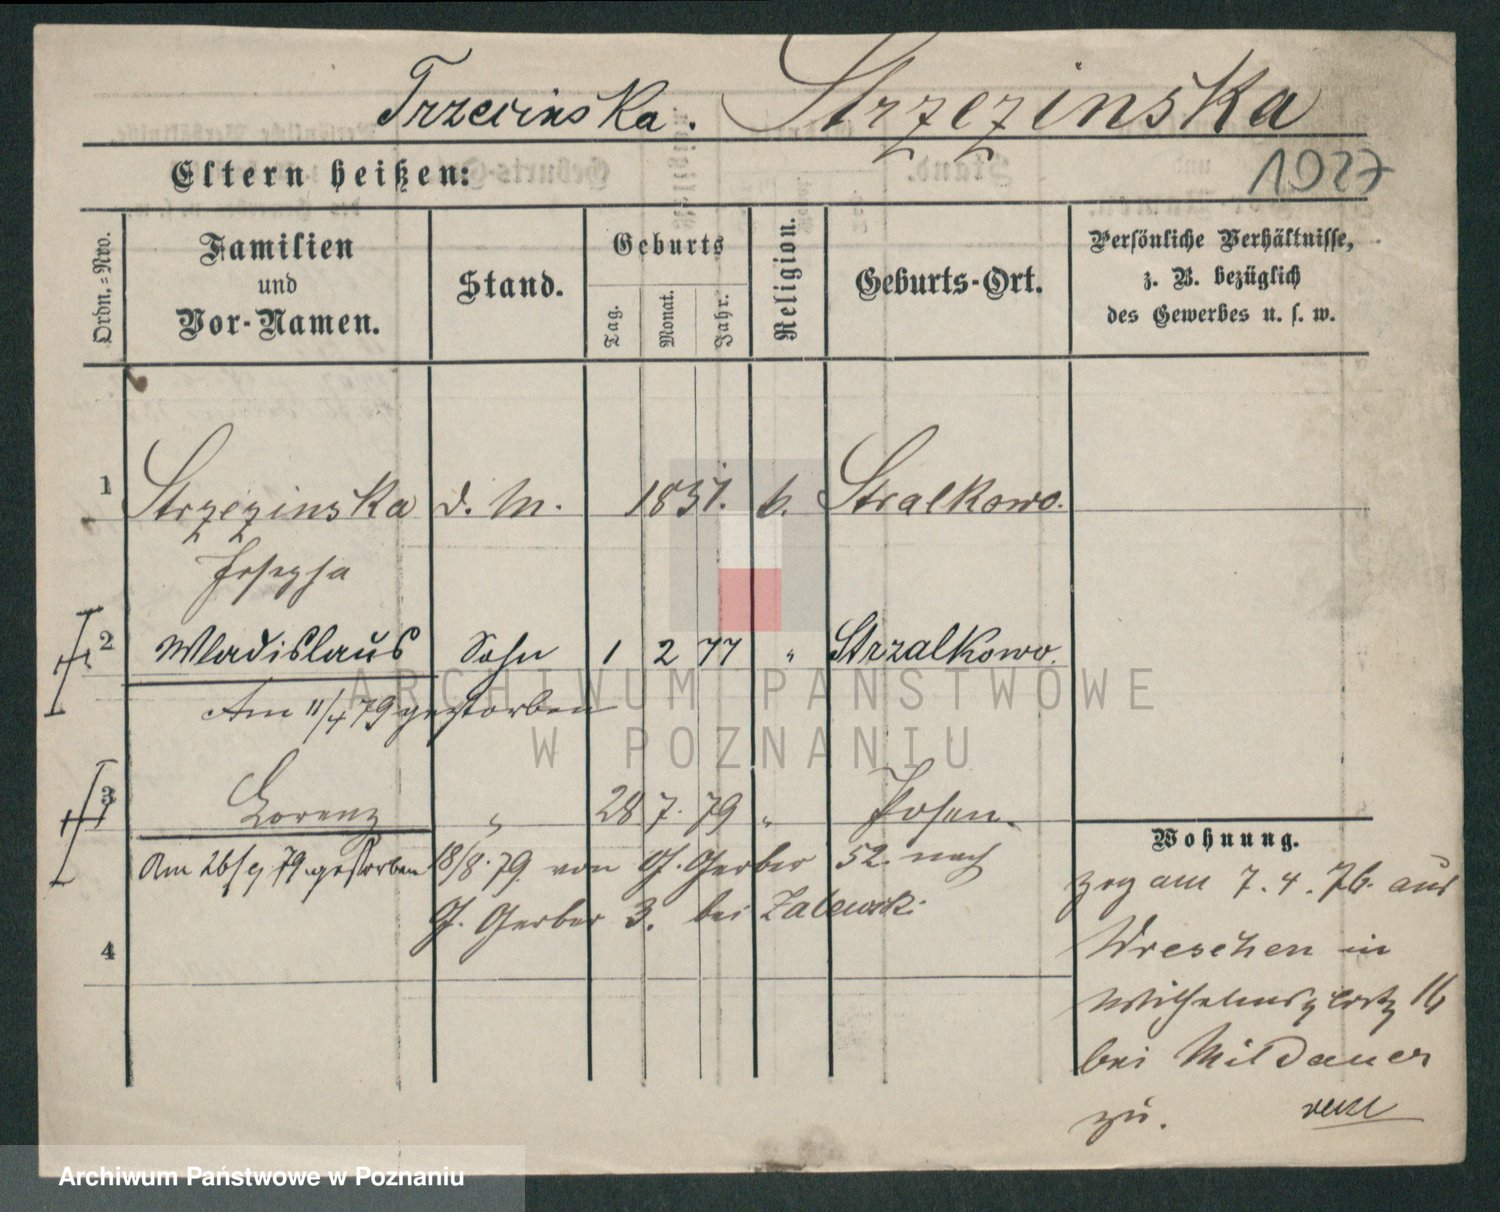 Trzecinska. Strzezinska
1927
Eltern heißen:
Ordn.=Nro.
Familien
und
Vor-Namen.
Stand.
Geburts
Tag.
Monat.
Jahr.
Religion.
Geburts-Ort.
Persönliche Verhältnisse,
z. B. bezüglich
des Gewerbes u. s. w.
1 Strzezinska d. M. 1851. k. Stralkowo.
Josepha
2 Wladislaus Sohn 1 2 77 " Strzalkowo.
Am 11/4 79 gestorben
3 Lorenz " 28 7. 79 " Posen.
Am 26/9 79. gestorben 18/8. 79. von G. Gerber 52. nach
G. Gerber 3. bei Zalewski
4
Wohnung.
zog am 7. 4. 76. aus
Wreschen in
Wilhelmsplatz 16
bei Mildauer
zu.
ARCHIWUM PAŃSTWOWE
W POZNANIU
Archiwum Państwowe w Poznaniu